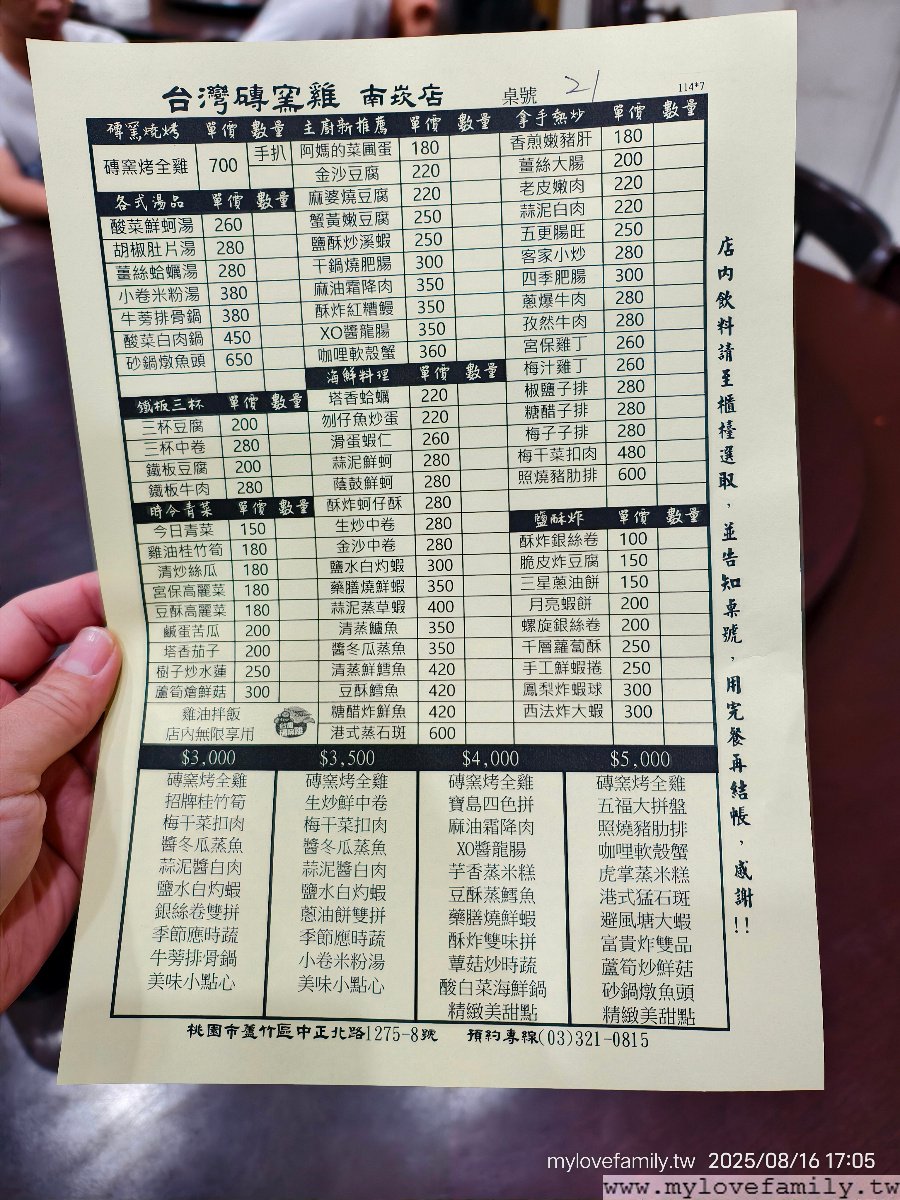 台灣磚窯雞 南崁店 桌號 21 114*7
磚窯燒烤 單價 數量
磚窯烤全雞 700 手扒
各式湯品 單價 數量
酸菜鮮蚵湯 260
胡椒肚片湯 280
薑絲蛤蠣湯 280
小卷米粉湯 380
牛蒡排骨鍋 380
酸菜白肉鍋 450
砂鍋燉魚頭 650
鐵板三杯 單價 數量
三杯豆腐 200
三杯中卷 280
鐵板豆腐 200
鐵板牛肉 280
時令青菜 單價 數量
今日青菜 150
雞油桂竹筍 180
清炒絲瓜 180
宮保高麗菜 180
豆酥高麗菜 180
鹹蛋苦瓜 200
塔香茄子 200
樹子炒水蓮 250
蘆筍燴鮮菇 300
雞油拌飯
店內無限享用
主廚新推薦 單價 數量
阿媽的菜圃蛋 180
金沙豆腐 220
麻婆燒豆腐 220
蟹黃嫩豆腐 250
鹽酥炒溪蝦 250
干鍋燒肥腸 300
麻油霜降肉 350
酥炸紅糟鰻 350
XO醬龍腸 350
咖哩軟殼蟹 360
海鮮料理 單價 數量
塔香蛤蠣 220
刎仔魚炒蛋 220
滑蛋蝦仁 260
蒜泥鮮蚵 280
蔭鼓鮮蚵 280
酥炸蚵仔酥 280
生炒中卷 280
金沙中卷 280
鹽水白灼蝦 300
藥膳燒鮮蝦 350
蒜泥蒸草蝦 400
清蒸鱸魚 350
醬冬瓜蒸魚 350
清蒸鮮鱈魚 420
豆酥鱈魚 420
糖醋炸鮮魚 420
港式蒸石斑 600
拿手熱炒 單價 數量
香煎嫩豬肝 180
薑絲大腸 200
老皮嫩肉 220
蒜泥白肉 220
五更腸旺 250
客家小炒 280
四季肥腸 300
蔥爆牛肉 280
孜然牛肉 280
宮保雞丁 260
梅汁雞丁 260
椒鹽子排 280
糖醋子排 280
梅子子排 280
梅干菜扣肉 480
照燒豬肋排 600
鹽酥炸 單價 數量
酥炸銀絲卷 100
脆皮炸豆腐 150
三星蔥油餅 150
月亮蝦餅 200
螺旋銀絲卷 200
千層蘿蔔酥 250
手工鮮蝦捲 250
鳳梨炸蝦球 300
西法炸大蝦 300
店內飲料請至櫃檯選取，並告知桌號，用完餐再結帳，感謝!!
$3,000
磚窯烤全雞
招牌桂竹筍
梅干菜扣肉
醬冬瓜蒸魚
蒜泥醬白肉
鹽水白灼蝦
銀絲卷雙拼
季節應時蔬
牛蒡排骨鍋
美味小點心
$3,500
磚窯烤全雞
生炒鮮中卷
梅干菜扣肉
醬冬瓜蒸魚
蒜泥醬白肉
鹽水白灼蝦
蔥油餅雙拼
季節應時蔬
小卷米粉湯
美味小點心
$4,000
磚窯烤全雞
寶島四色拼
麻油霜降肉
XO醬龍腸
芋香蒸米糕
豆酥蒸鱈魚
藥膳燒鮮蝦
酥炸雙味拼
蕈菇炒時蔬
酸白菜海鮮鍋
精緻美甜點
$5,000
磚窯烤全雞
五福大拼盤
照燒豬肋排
咖哩軟殼蟹
虎掌蒸米糕
港式猛石斑
避風塘大蝦
富貴炸雙品
蘆筍炒鮮菇
砂鍋燉魚頭
精緻美甜點
桃園市蘆竹區中正北路1275-8號 預約專線(03)321-0815
mylovefamily.tw 2025/08/16 17:05
www.mylovefamily.tw